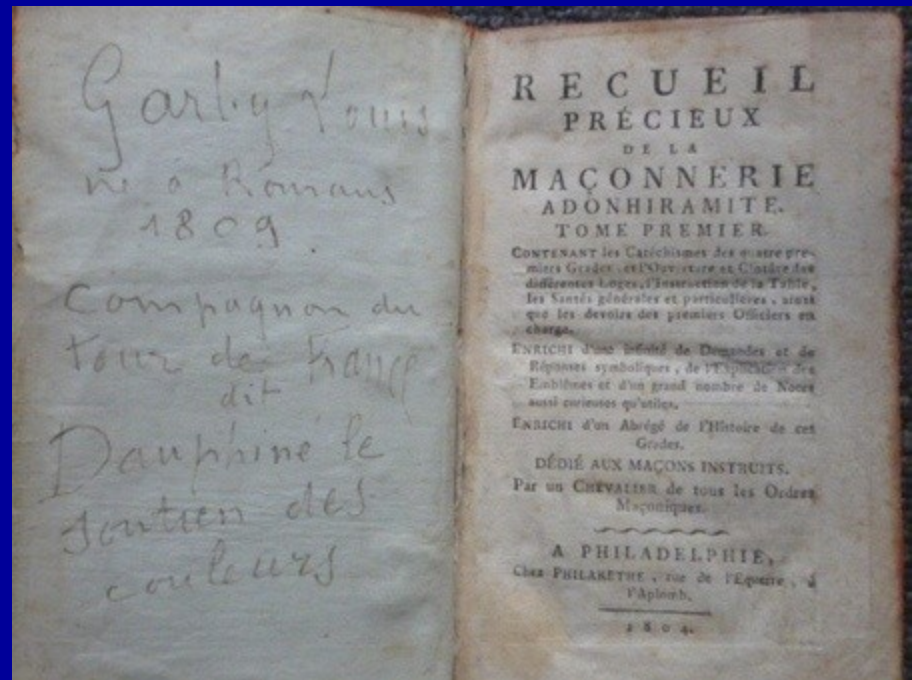 Garby Louis
né à Romans
1809.
Compagnon du
tour de France
dit
Dauphiné le
soutien des
couleurs
RECUEIL
PRÉCIEUX
DE LA
MAÇONNERIE
ADONHIRAMITE.
TOME PREMIER.
CONTENANT les Catéchismes des quatre pre-
miers Grades, et l'Ouverture et Clôture des
différentes Loges, l'Instruction de la Table,
les Santés générales et particulieres, ainsi
que les devoirs des premiers Officiers en
charge.
ENRICHI d'une infinité de Demandes et de
Réponses symboliques, de l'Explication des
Emblêmes et d'un grand nombre de Notes
aussi curieuses qu'utiles.
ENRICHI d'un Abrégé de l'Histoire de ces
Grades.
DÉDIÉ AUX MAÇONS INSTRUITS.
Par un CHEVALIER de tous les Ordres
Maçoniques.
A PHILADELPHIE,
Chez PHILARETHE, rue de l'Equerre, à
l'Aplomb.
1804.